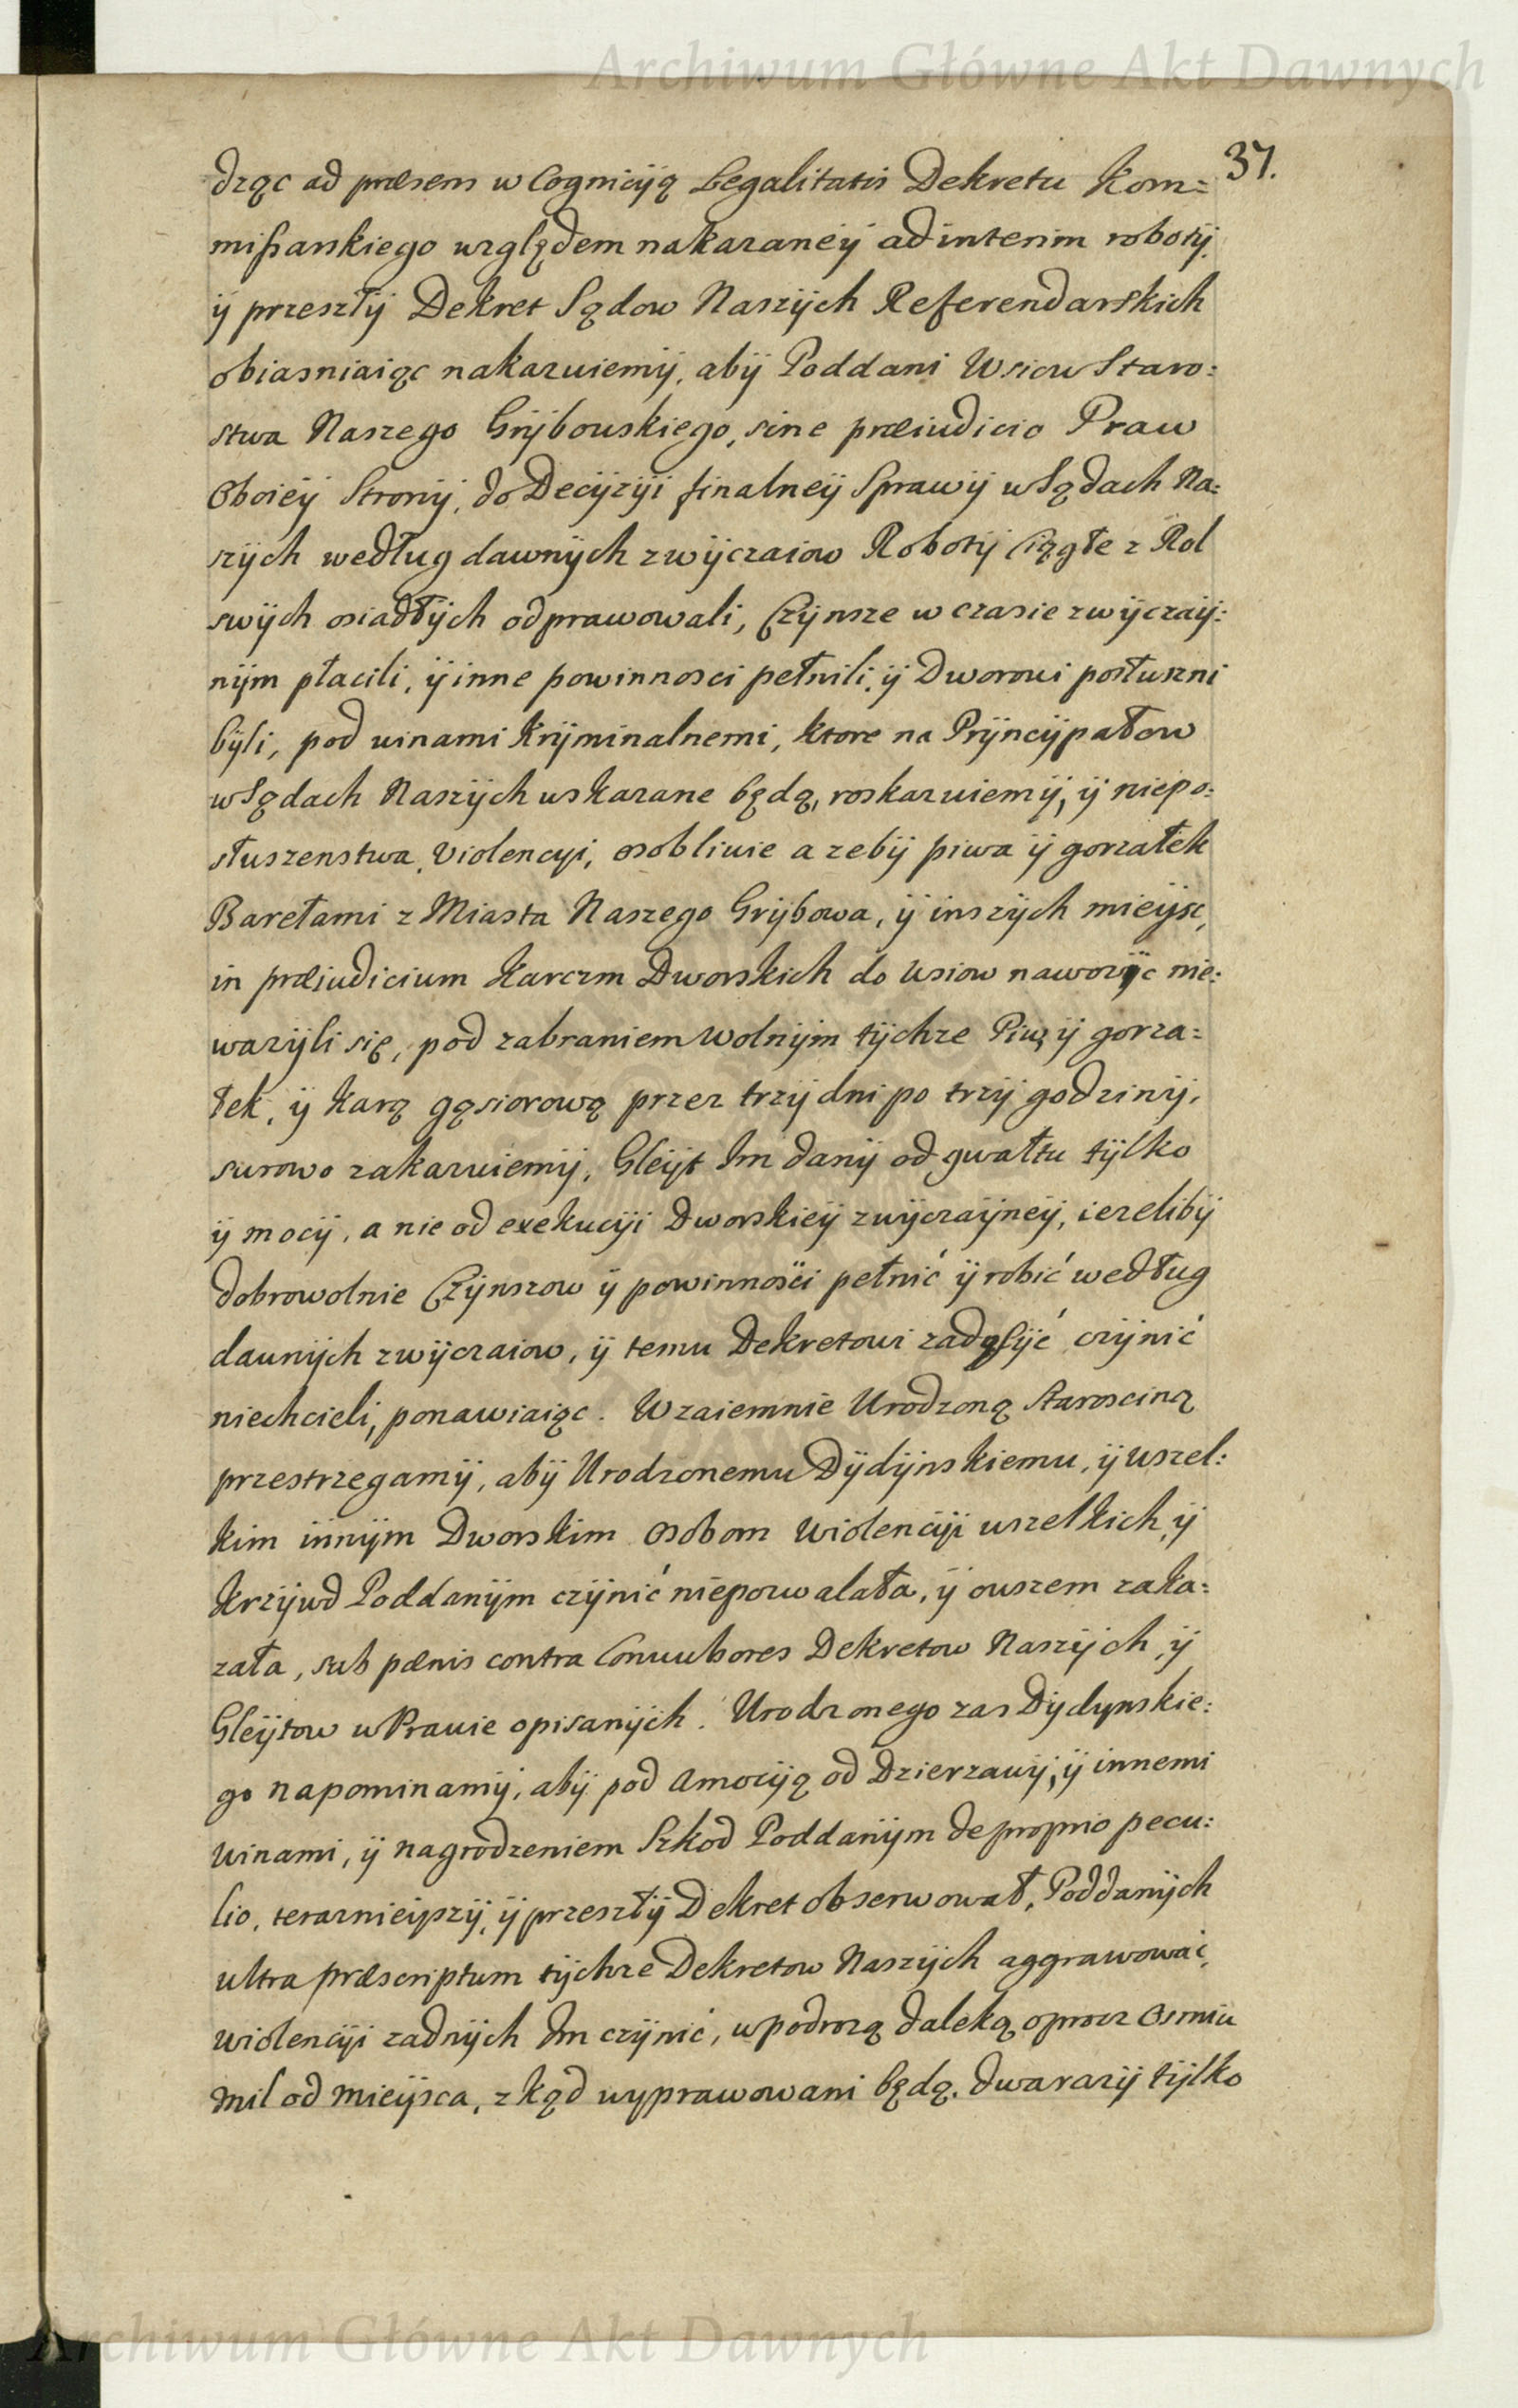 Archiwum Główne Akt Dawnych
37.
dząc ad præsens w Cognicyią Legalitatis Dekretu Kom=
mißarskiego względem nakazaneÿ ad interim robotÿ,
ÿ przeszłÿ Dekret Sądow Naszÿch Referendarskich
obiasniaiąc nakazuiemÿ, abÿ Poddani Wsiow Staro:
stwa Naszego Grÿbowskiego, sine præiudicio Praw
Oboieÿ Stronÿ, do Decÿzÿi finalneÿ Sprawÿ w Sądach Na:
szÿch według dawnÿch zwÿczaiow Robotÿ Ciągłe z Rol
swÿch osiadłÿch odprawowali, Czÿnsze w czasie zwÿczaÿ:
nÿm płacili, ÿ inne powinnosci pełnili, ÿ Dworowi posłuszni
bÿli, pod winami Krÿminalnemi, ktore na Prÿncÿpałow
w Sądach Naszÿch wskazane będą, roskazuiemÿ, ÿ niepo:
słuszenstwa, Violencyi, osobliwie a zebÿ piwa ÿ gorzałek
Barełami z Miasta Naszego Grÿbowa, ÿ inszÿch mieÿsc,
in præiudicium Karczm Dworskich do Wsiow nawozÿc nie:
wazÿli się, pod zabraniem wolnÿm tÿchze Piw, ÿ gorza=
łek, ÿ Karą gąsiorową przez trzÿ dni po trzÿ godzinÿ,
surowo zakazuiemÿ, Gleÿt Im danÿ od gwałtu tÿlko
ÿ mocÿ, a nie od exekucÿi Dworskieÿ zwÿczaÿneÿ, iezelibÿ
dobrowolnie Czÿnszow ÿ powinnosci pełnić ÿ robić według
dawnÿch zwÿczaiow, ÿ temu Dekretowi zadosÿć czÿnić
niechcieli, ponawiaiąc. Wzaiemnie Urodzoną Staroscinę
przestrzegamÿ, abÿ Urodzonemu Dÿdÿnskiemu, ÿ wszel:
kim innÿm Dworskim osobom Wiolencÿi wszelkich, ÿ
Krzÿwd Poddanÿm czÿnić niepozwalała, ÿ owszem zaka:
zała, sub pœnis contra Convulsores Dekretow Naszÿch, ÿ
Gleÿtow w Prawie opisanÿch. Urodzonego zas Dÿdynskie:
go napominamÿ, abÿ pod amocÿą od Dzierzawÿ, ÿ innemi
winami, ÿ nagrodzeniem Szkod Poddanÿm de proprio pecu:
lio, terazniejszÿ, ÿ przeszłÿ Dekret obserwował, Poddanÿch
ultra præscriptum tÿchze Dekretow Naszÿch aggrawować,
wiolencÿi zadnÿch Im czÿnić, w podrozą daleką oprocz osmiu
mil od mieÿsca, zkąd wyprawowani będą, dwa razÿ tÿlko
Archiwum Główne Akt Dawnych